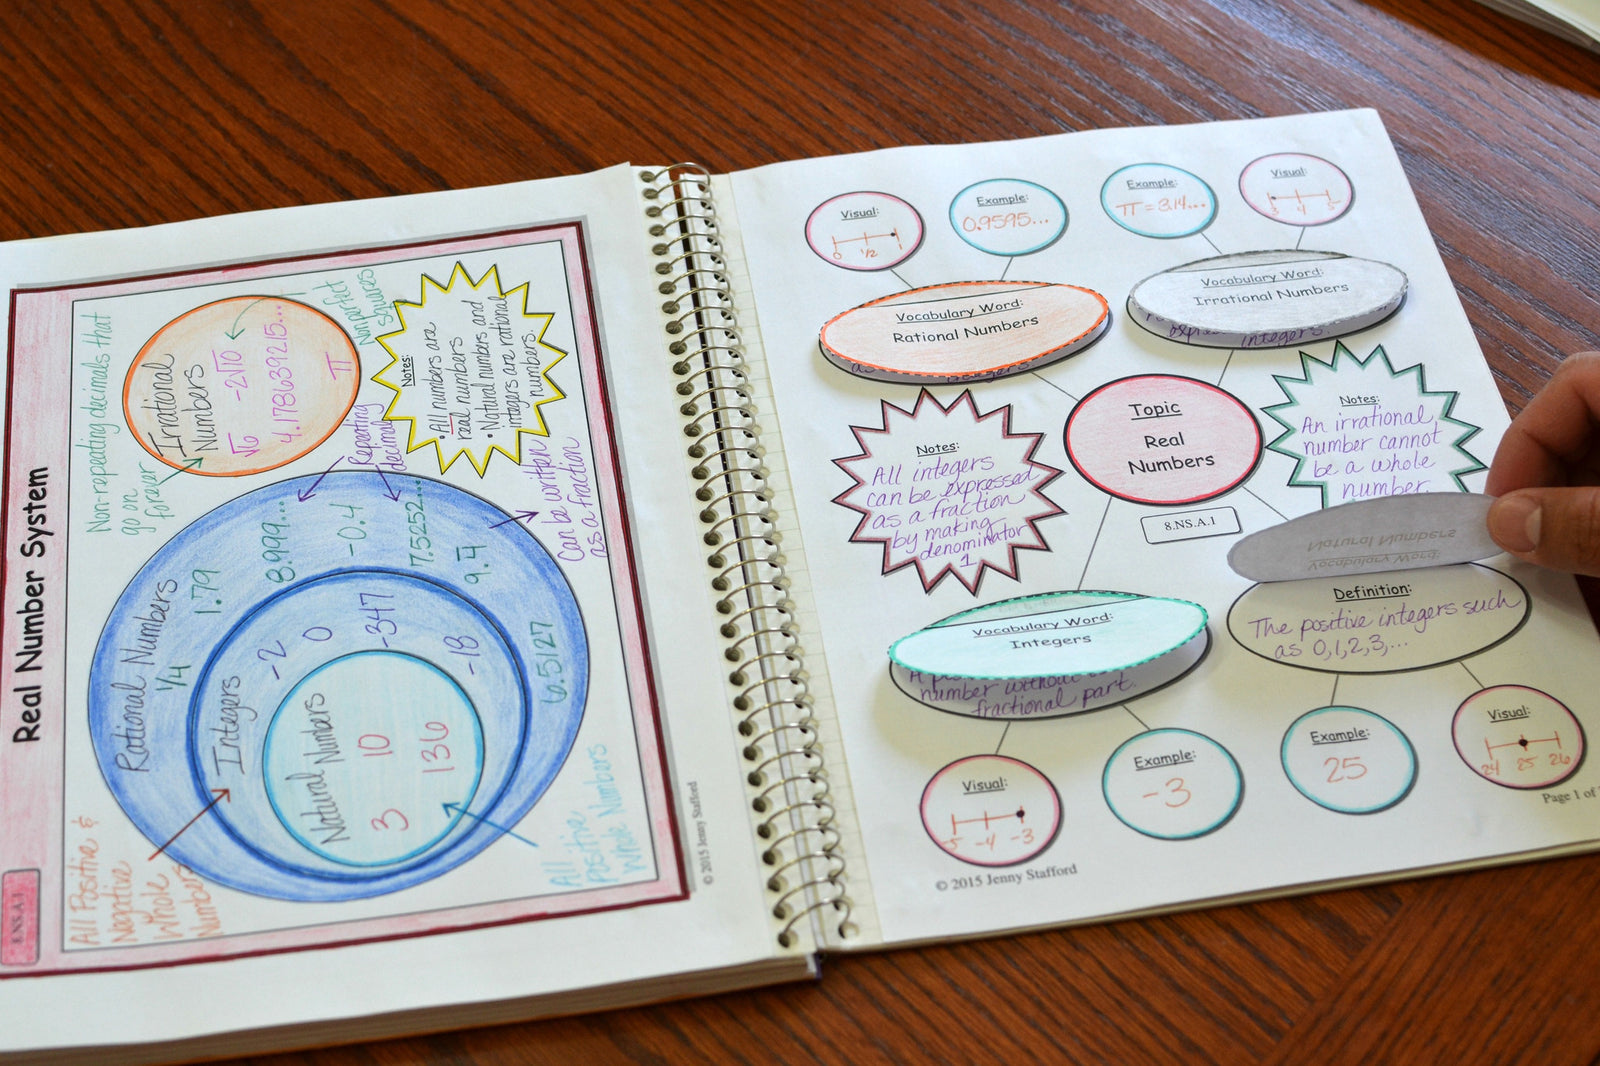 Real Number System
8.NS.A.1
Non-repeating decimals that
go on
forever
Irrational
Numbers
√6 -2√10
4.178639215...
π
Nonperfect
squares
Notes:
• All numbers are
real numbers
• Natural numbers and
integers are rational
numbers.
Repeating
decimal
Can be written
as a fraction
Rational Numbers
1/4 1.79
8.999...
-0.4
7.5252...
9.4
6.5127
Integers
-2 0 -347 -18
Natural Numbers
3 10 136
All Positive &
Negative
Whole
Numbers
All
Positive
Whole Numbers
© 2015 Jenny Stafford
Visual:
0 1/2 1
Example:
0.9595...
Example:
π = 3.14...
Visual:
3 4 5
Vocabulary Word:
Rational Numbers
as integers.
Vocabulary Word:
Irrational Numbers
integers.
Notes:
All integers
can be expressed
as a fraction
by making
denominator
1
Topic
Real
Numbers
8.NS.A.1
Notes:
An irrational
number cannot
be a whole
number
Vocabulary Word:
Natural Numbers
Definition:
The positive integers such
as 0,1,2,3,...
Vocabulary Word:
Integers
number without
fractional part.
Visual:
-5 -4 -3
Example:
-3
Example:
25
Visual:
24 25 26
© 2015 Jenny Stafford
Page 1 of